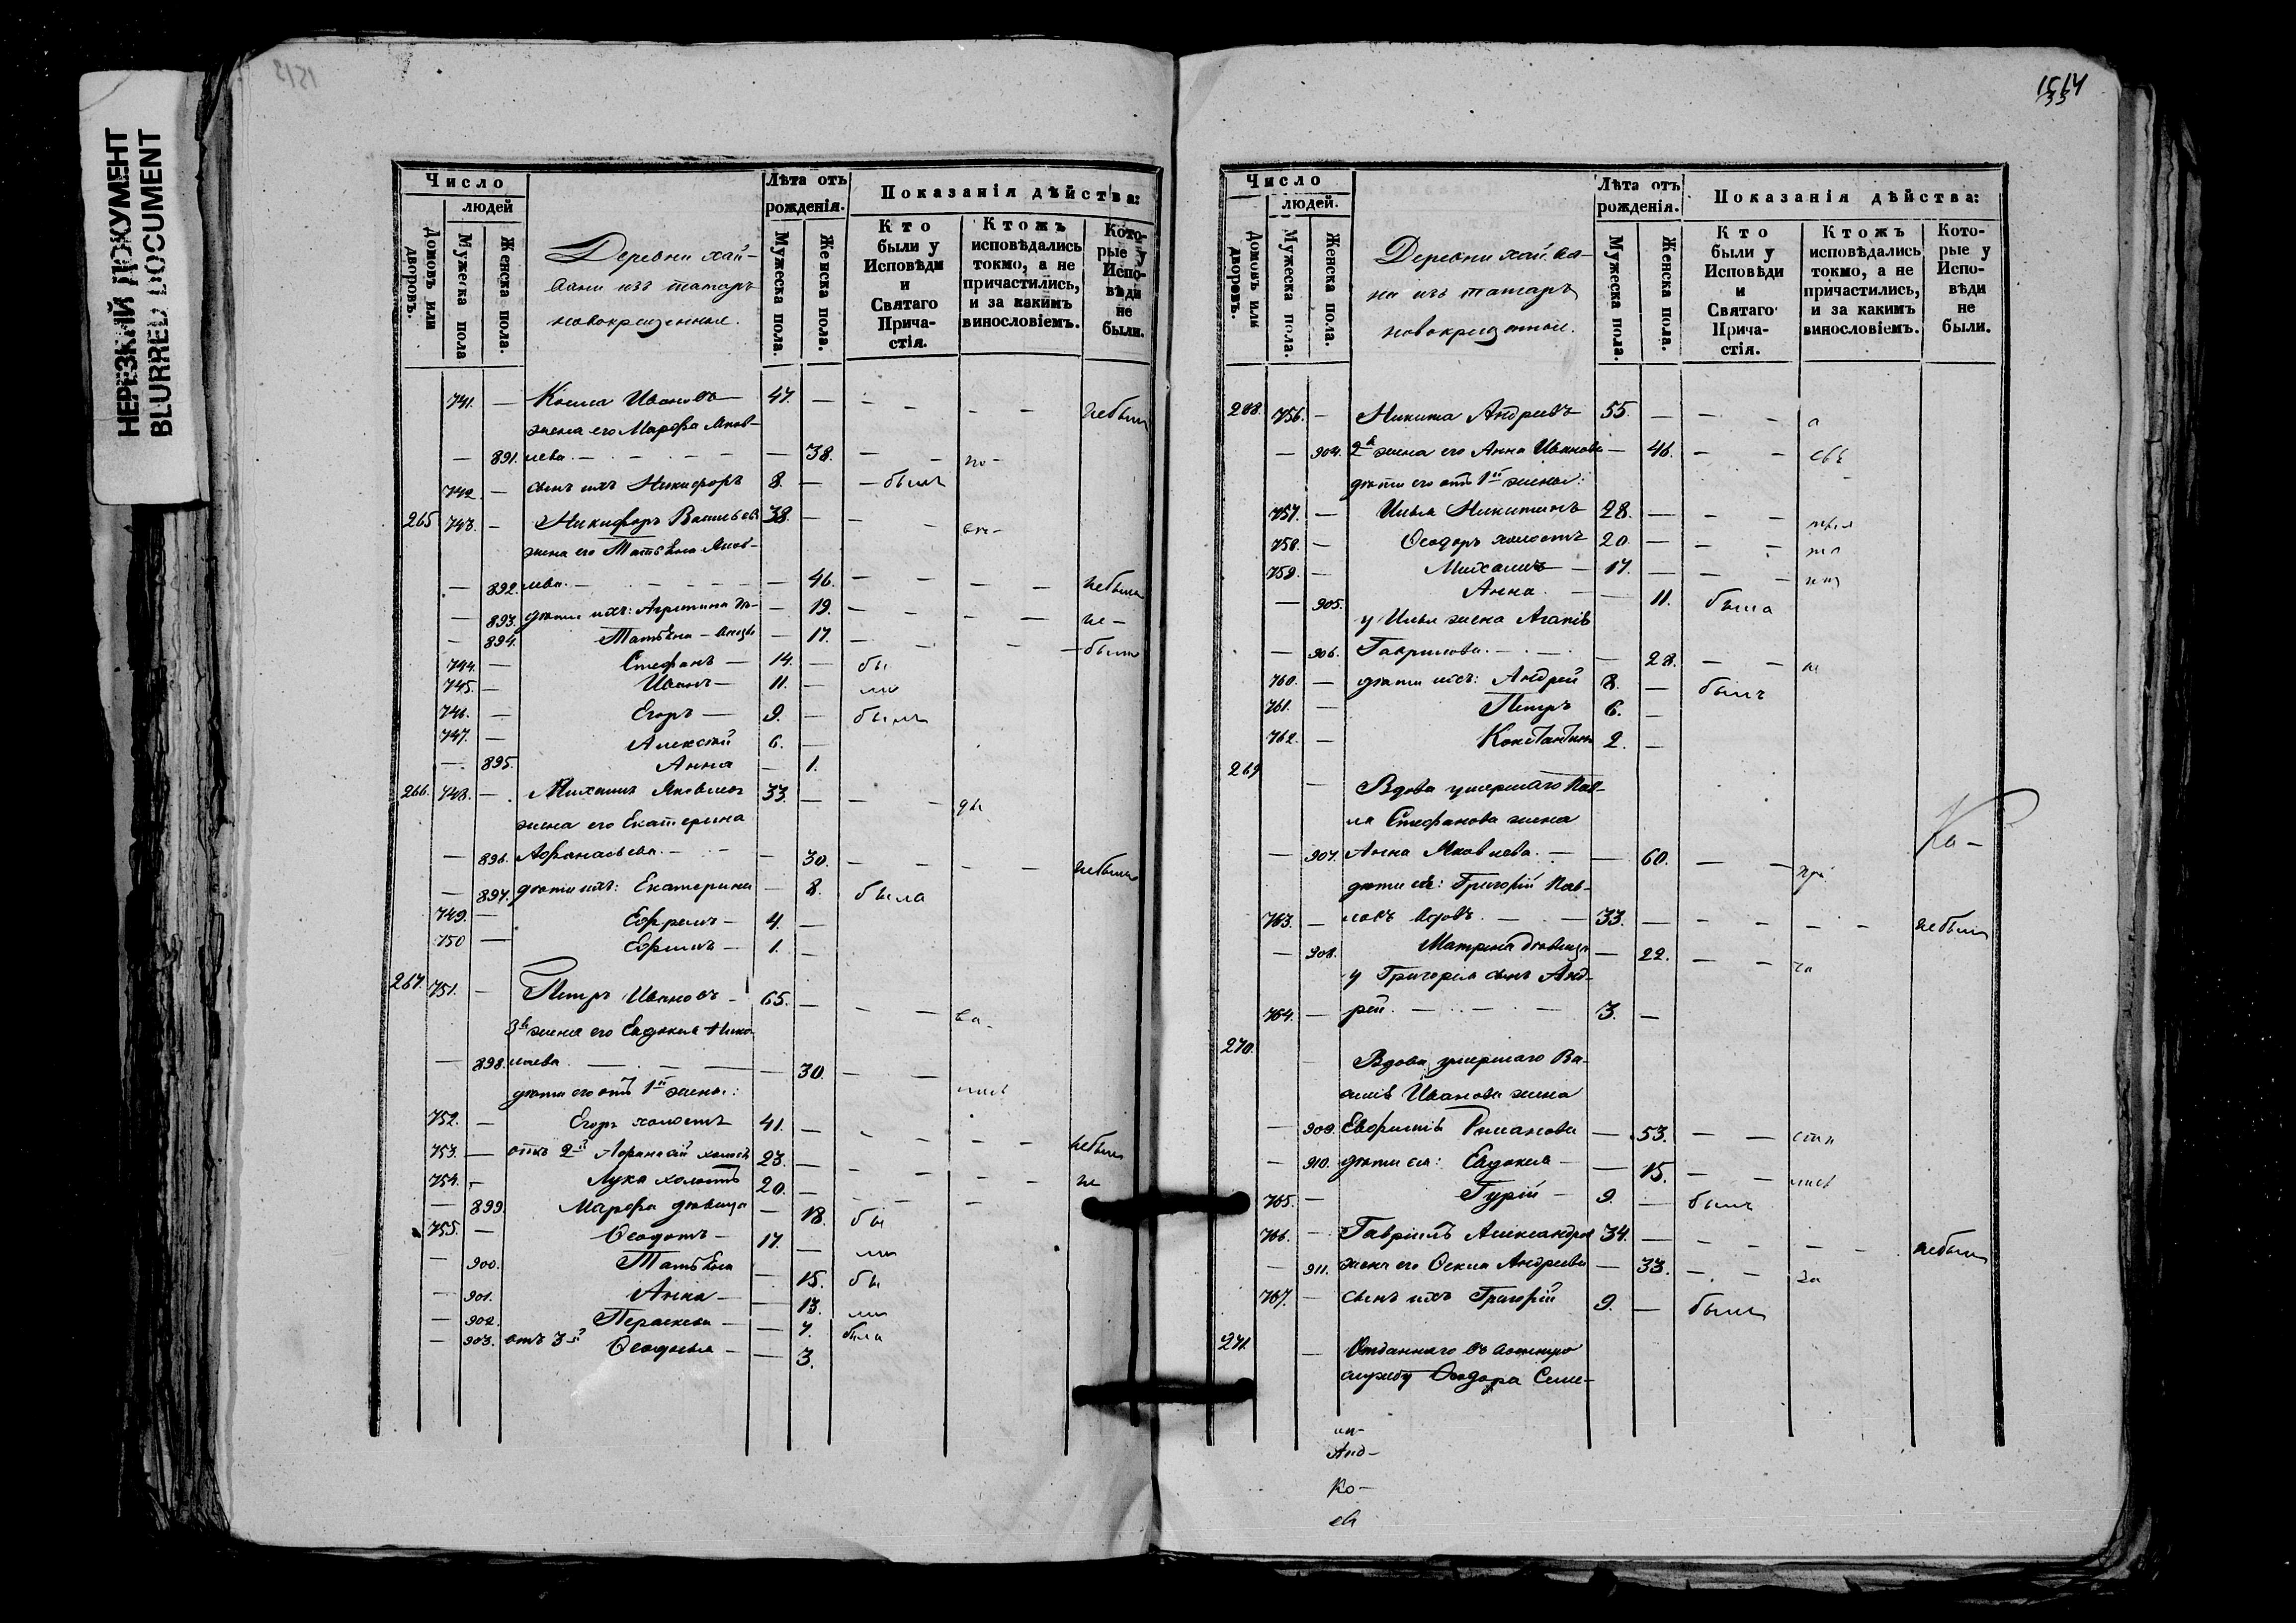 НЕРЕЗКИЙ ДОКУМЕНТ
BLURRED DOCUMENT
Число
людей
Домовъ или дворовъ.
Мужеска пола
Женска пола.
Деревни хай-
вани изъ татаръ
новокрещенные.
Лѣта отъ рожденія.
Мужеска пола.
Женска пола.
Показанія дѣйства:
Кто были у Исповѣди и Святаго Прича-стія.
Ктожъ исповѣдались токмо, а не причастились, и за какимъ винословіемъ.
Кото-рые у Испо-вѣди не были.
741. — Козма Ивановъ 47. — небылъ
жена его Марѳа Яков-
— 891. лева. — — 38. —
742. — сынъ ихъ Никифоръ 8. — былъ
265 743. — Никифоръ Васильевъ 38. —
жена его Татьяна Яков-
— 892. лева. — — 46. — небыла
— 893. дѣти ихъ: Агрипина дѣ- — 19. — не-
— 894. Татьяна — вицы — 17. — были
744. — Стефанъ — 14. — бы
745. — Иванъ — 11. — ли
746. — Егоръ — 9. — былъ
747. — Алексѣй 6. —
— 895. Анна — 1.
266. 748. — Михаилъ Яковлевъ 33. —
жена его Екатерина
— 896. Афанасьева. — — 30. — небыла
— 897. дѣти ихъ: Екатерина — 8. была
749. — Ефремъ — 4. —
750 — Ефимъ — 1. —
267. 751. — Петръ Ивановъ — 65. —
3я жена его Евдокія Нико-
— 898. лаева — — 30. —
дѣти его отъ 1й жены:
752. — Егоръ холостъ 41. — небылъ
753. — отъ 2й Афанасій холостъ 23. —
754. — Лука холостъ 20. — не
— 899. Марѳа дѣвица — 18. бы
755. — Ѳеодотъ — 17. — ли
— 900. Татьяна — 15. бы
— 901. Анна — — 13. ли
— 902. Перасковья — — 7. была
— 903. отъ 3й Ѳеодосья — — 3.
Число
людей.
Домовъ или дворовъ.
Мужеска пола.
Женска пола.
Деревни хайва-
ни изъ татаръ
новокрещенные.
Лѣта отъ рожденія.
Мужеска пола.
Женска пола.
Показанія дѣйства:
Кто были у Исповѣди и Святаго Прича-стія.
Ктожъ исповѣдались токмо, а не причастились, и за какимъ винословіемъ.
Кото-рые у Испо-вѣди не были.
268. 756. — Никита Андреевъ 55. —
— 904. 2я жена его Анна Иванова — 46. —
дѣти его отъ 1й жены:
757. — Илья Никитинъ 28. —
758. — Ѳеодоръ холостъ 20. —
759. — Михаилъ — 17. —
— 905. Анна — 11. была
у Ильи жена Агапія
— 906. Гаврилова. — — 28. —
760. — дѣти ихъ: Андрей 8. — былъ
761. — Петръ 6. —
762. — Константинъ 2. —
269 — Вдова умершаго Пав-
ла Стефанова жена
— 907. Анна Яковлева. — — 60. —
дѣти ея: Григорій Пав-
763. — ловъ вдовъ. — 33. — небылъ
— 908. Матрена дѣвица — 22. —
у Григорія сынъ Анд-
764. — рей. — 3. —
270. — Вдова умершаго Ва-
силія Иванова жена
— 909. Евфимія Романова — 53. —
— 910. дѣти ея: Евдокія — — 15. —
765. — Гурій — 9. — былъ
766. — Гавріилъ Александровъ 34. — небылъ
— 911. жена его Ѳекла Андреева — 33. —
767. — сынъ ихъ Григорій 9. — былъ
271. — Отданнаго въ военную
службу Ѳеодора Семе-